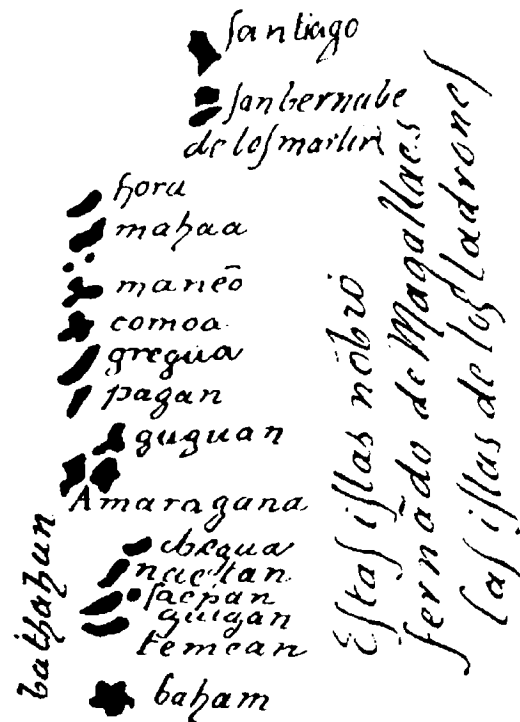 santiago
sanbernabe
de los martires
horu
mahaa
maneō
comoa
gregua
pagan
guguan
Amaragana
chegua
nactan
saepan
guigan
temcan
baham
bathahun
Estas islas nōbró
fernādo de Magallaes
las islas de los ladrones